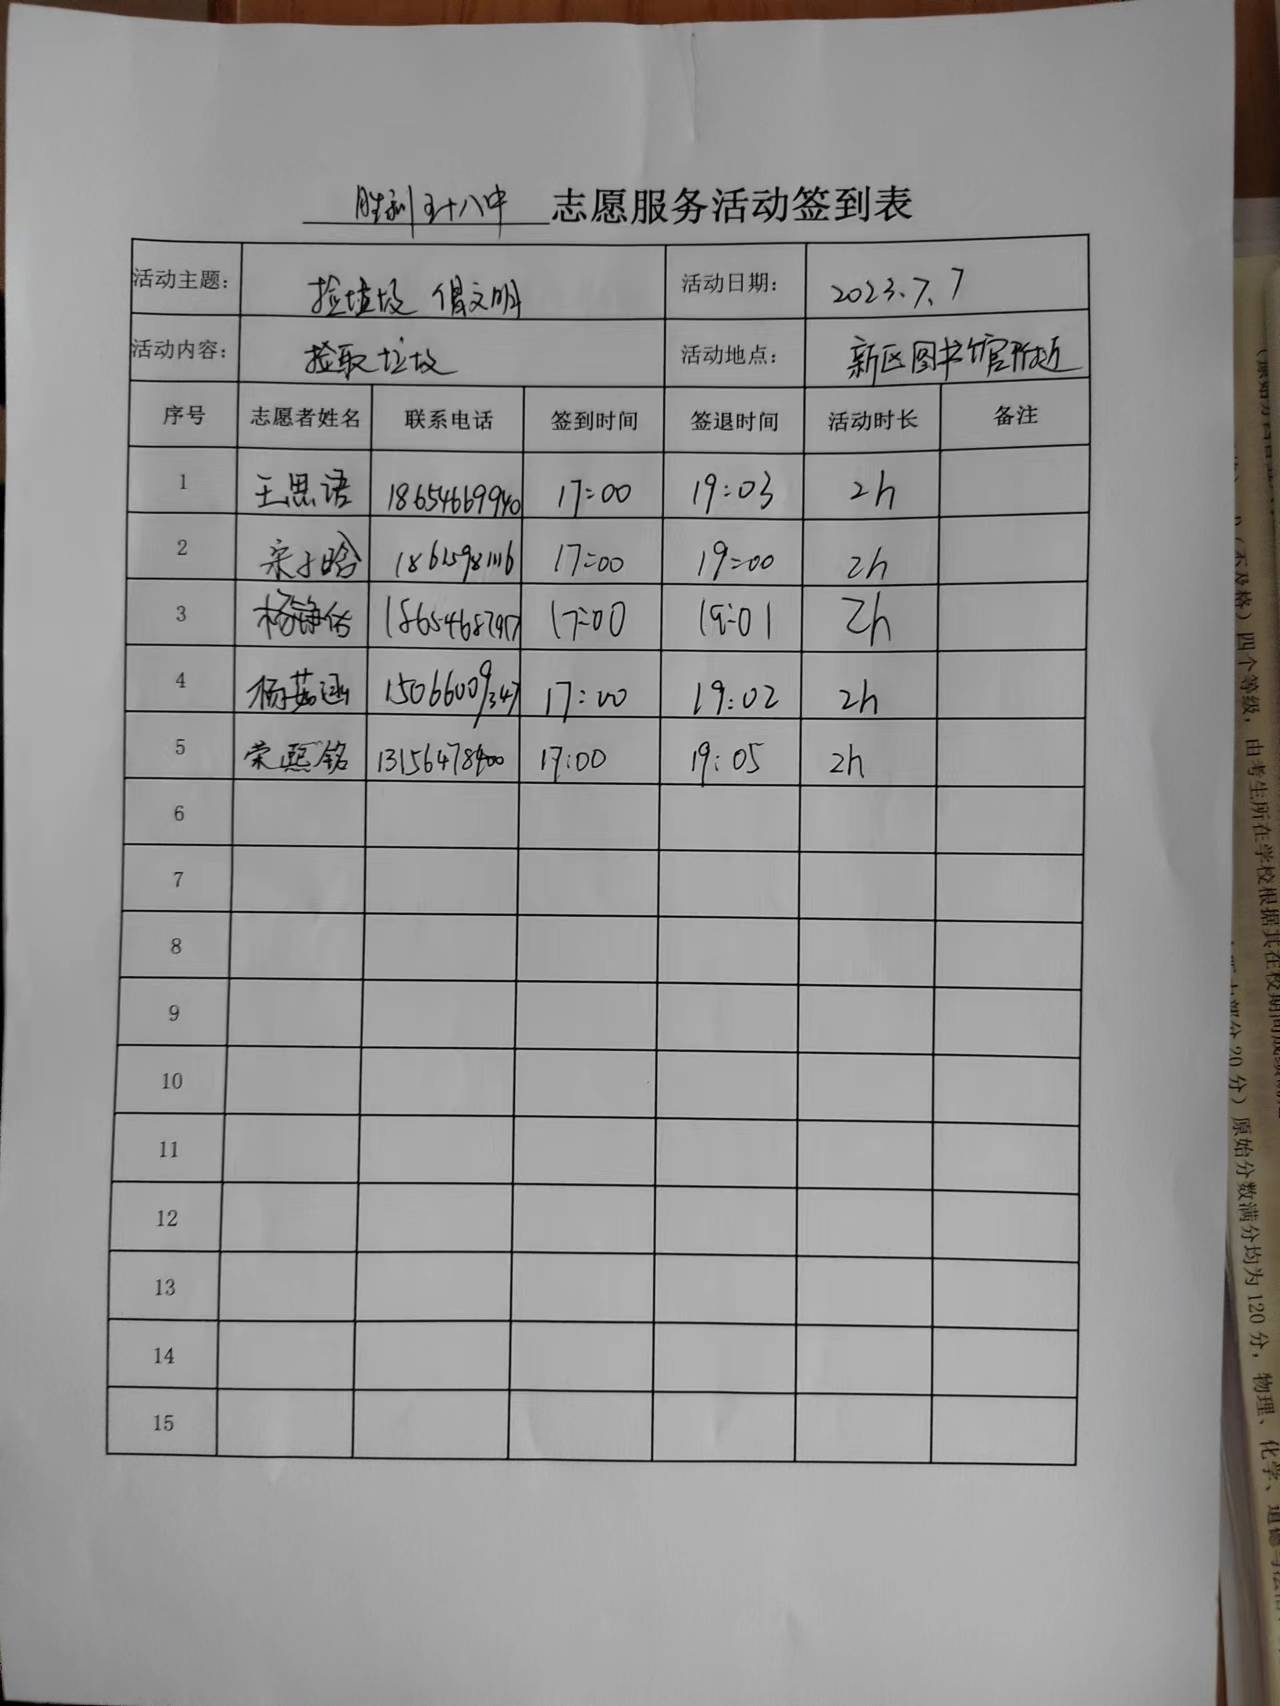 胜利五十八中 志愿服务活动签到表
活动主题: 捡垃圾 倡文明 活动日期: 2023.7.7
活动内容: 捡取垃圾 活动地点: 新区图书馆附近
序号 志愿者姓名 联系电话 签到时间 签退时间 活动时长 备注
1 王思语 18654669940 17:00 19:03 2h
2 宋子晗 17:00 19:00 2h
3 17:00 19:01 2h
4 杨茹涵 15066009347 17:00 19:02 2h
5 荣熙铭 17:00 19:05 2h
6
7
8
9
10
11
12
13
14
15
(不及格)四个等级,由考生所在学校根据其在校期间
20分)原始分数满分均为120分,物理、化学、道德与法治